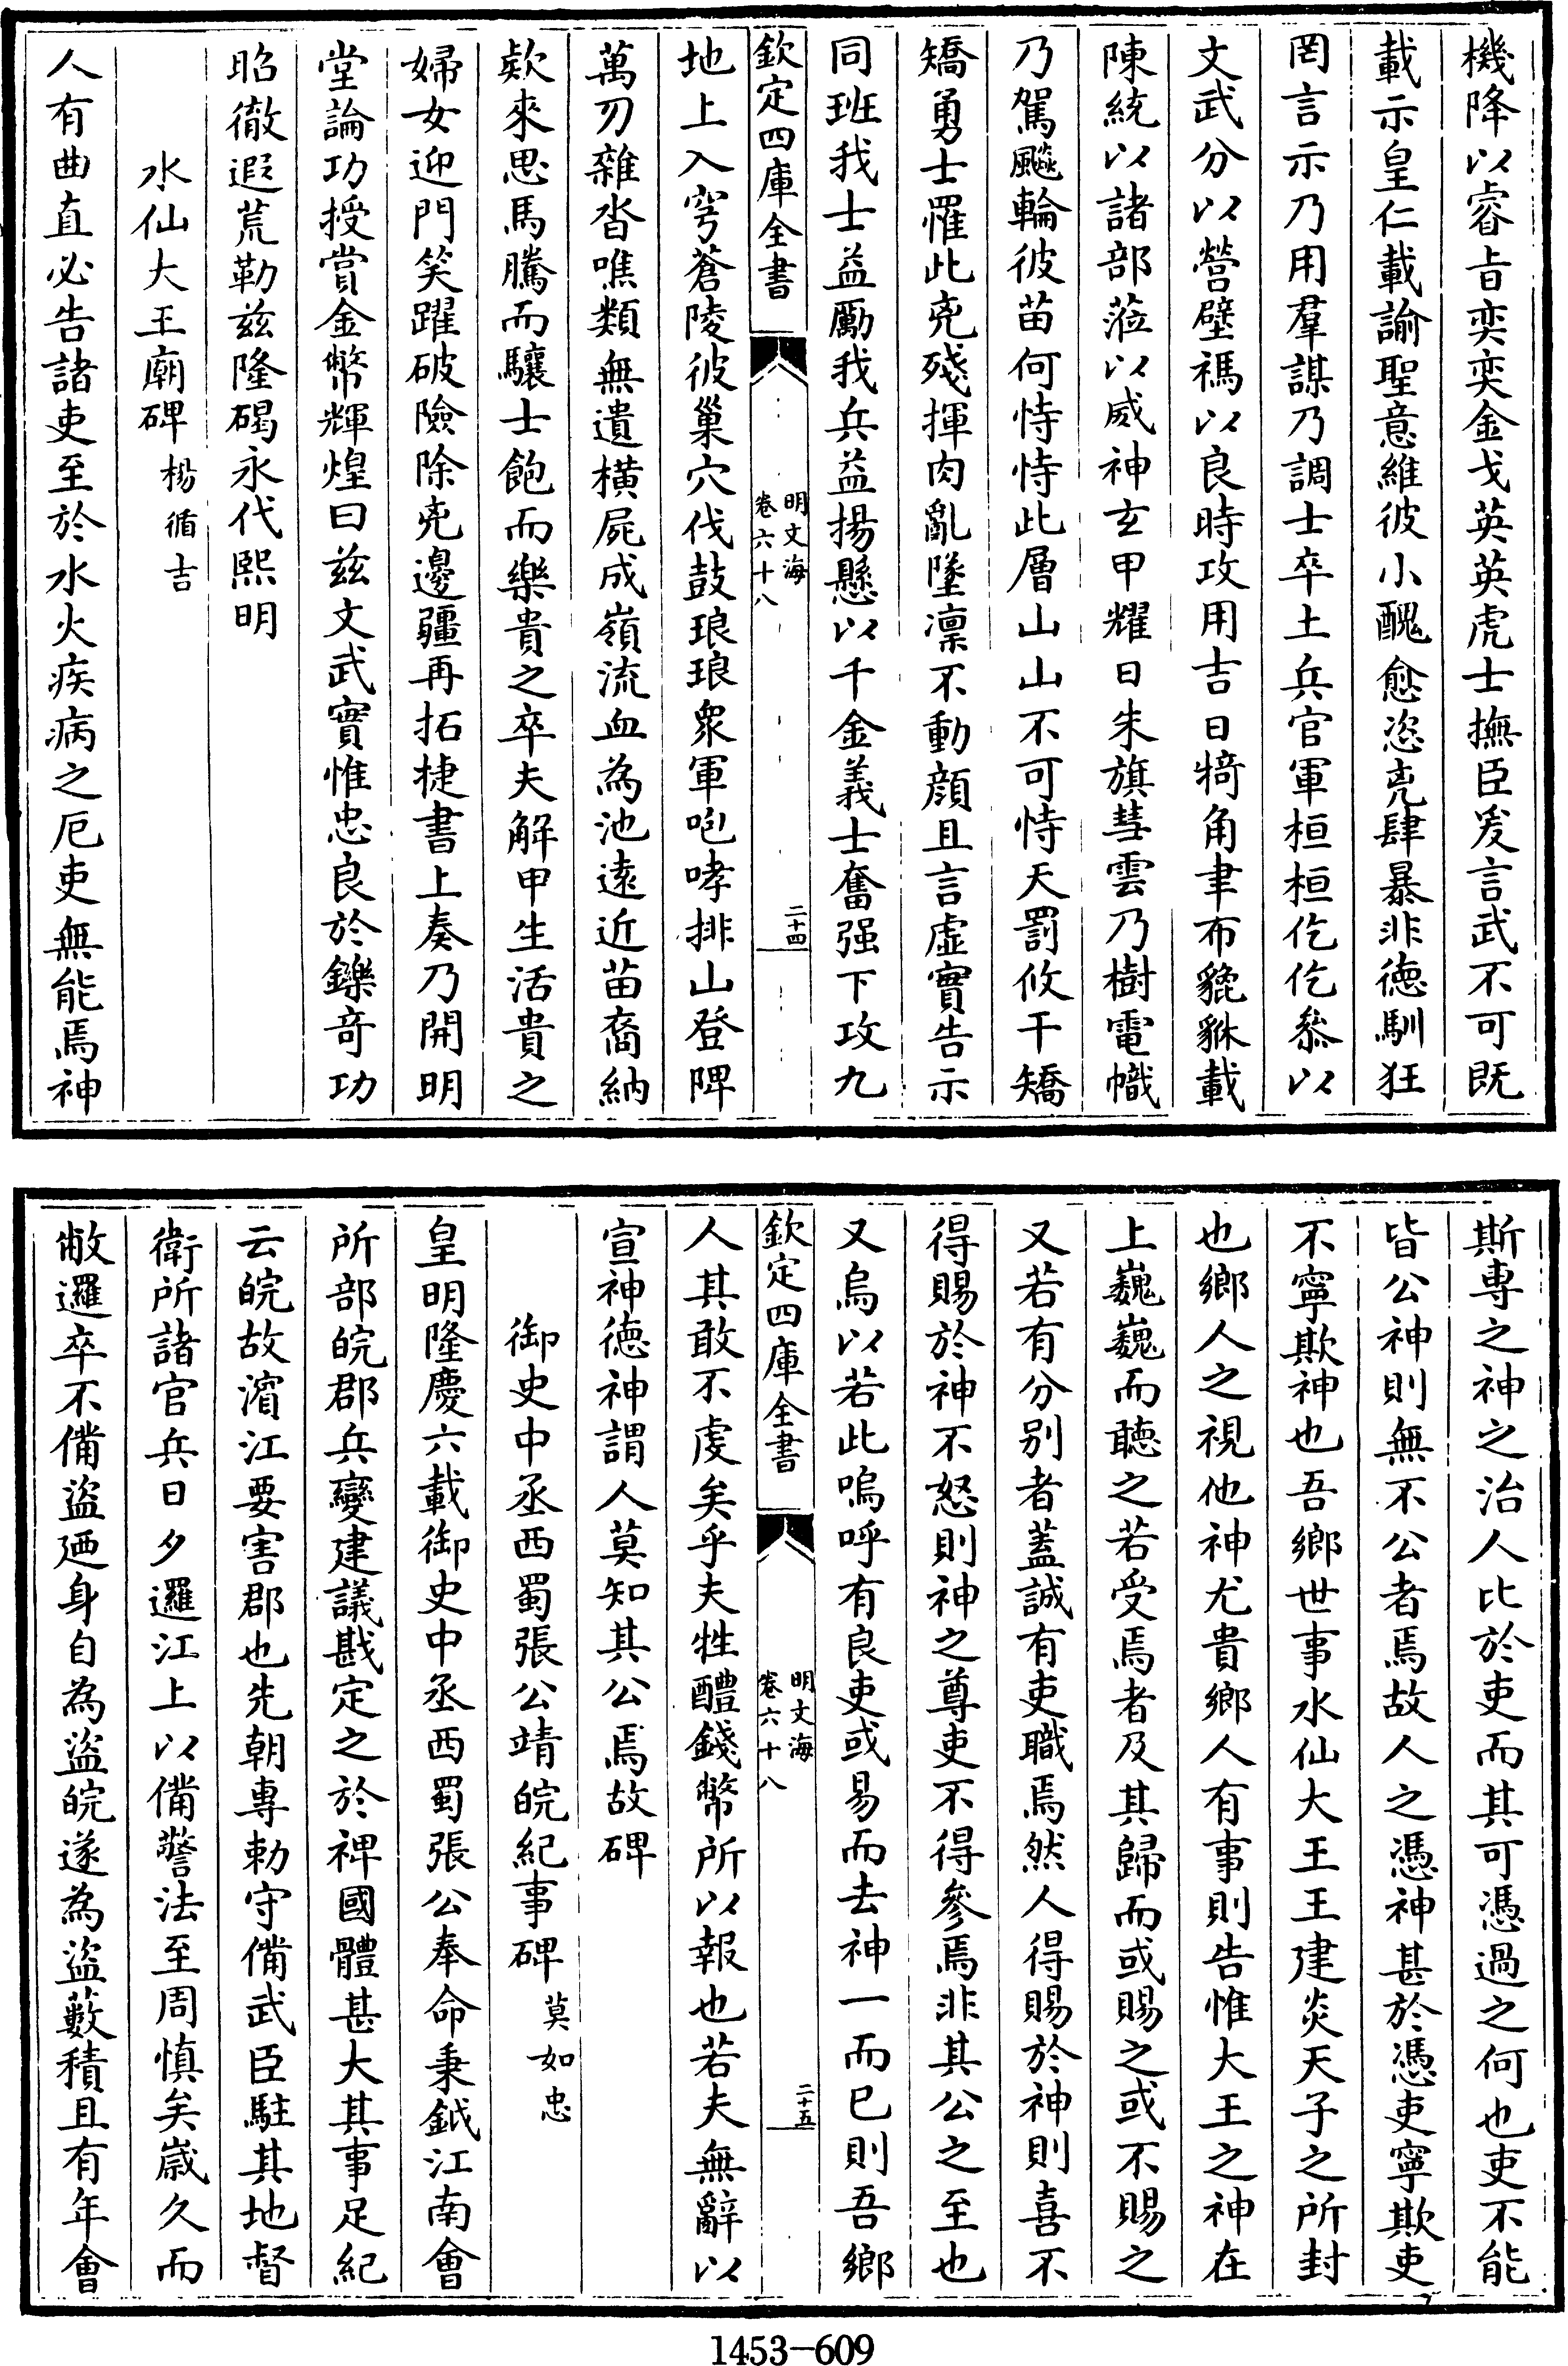 機降以睿旨奕奕金戈英英虎士撫臣爰言武不可既
載示皇仁載諭聖意維彼小醜愈恣兇肆暴非德馴狂
罔言示乃用羣謀乃調士卒土兵官軍桓桓仡仡叅以
文武分以營壁禡以良時攻用吉日犄角聿布貔貅載
陳統以諸部蒞以威神玄甲耀日朱旗彗雲乃樹電幟
乃駕飈輪彼苗何恃恃此層山山不可恃天罰攸干矯
矯勇士罹此兇殘揮肉亂墜凛不動顔且言虛實告示
同班我士益勵我兵益揚懸以千金義士奮强下攻九
欽定四庫全書
明文海
卷六十八
二十四
地上入穹蒼陵彼巢穴伐鼓琅琅衆軍咆哮排山登陴
萬刃雜沓噍類無遺横屍成嶺流血為池遠近苗裔納
欵來思馬騰而驤士飽而樂貴之卒夫解甲生活貴之
婦女迎門笑躍破險除兇邊疆再拓捷書上奏乃開明
堂論功授賞金幣輝煌曰兹文武實惟忠良於鑠奇功
昭徹遐荒勒兹隆碣永代熙明
水仙大王廟碑 楊循吉
人有曲直必告諸吏至於水火疾病之厄吏無能焉神
斯專之神之治人比於吏而其可憑過之何也吏不能
皆公神則無不公者焉故人之憑神甚於憑吏寧欺吏
不寧欺神也吾鄉世事水仙大王王建炎天子之所封
也鄉人之視他神尤貴鄉人有事則告惟大王之神在
上巍巍而聽之若受焉者及其歸而或賜之或不賜之
又若有分别者蓋誠有吏職焉然人得賜於神則喜不
得賜於神不怒則神之尊吏不得參焉非其公之至也
又烏以若此嗚呼有良吏或易而去神一而已則吾鄉
欽定四庫全書
明文海
卷六十八
二十五
人其敢不虔矣乎夫牲醴錢幣所以報也若夫無辭以
宣神德神謂人莫知其公焉故碑
御史中丞西蜀張公靖皖紀事碑 莫如忠
皇明隆慶六載御史中丞西蜀張公奉命秉鉞江南會
所部皖郡兵變建議戡定之於禆國體甚大其事足紀
云皖故濵江要害郡也先朝專勅守備武臣駐其地督
衛所諸官兵日夕邏江上以備警法至周慎矣嵗久而
敝邏卒不備盜廼身自為盜皖遂為盜藪積且有年會
1453-609